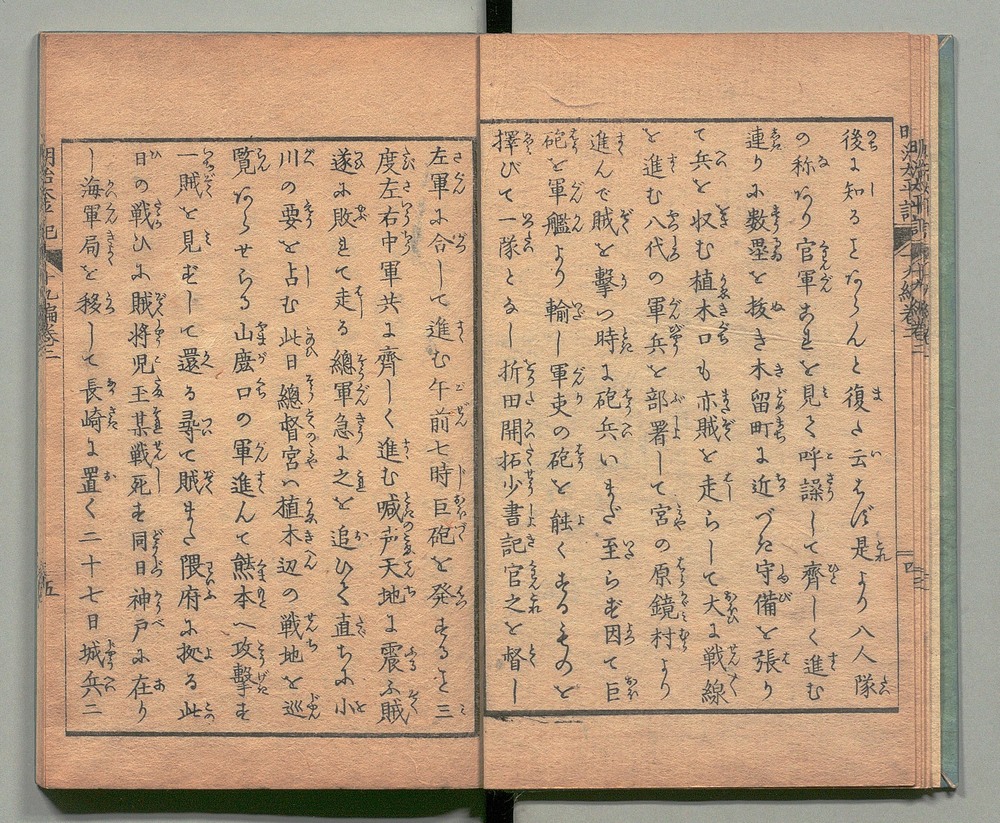 後に知るとならんと復た云はば是より八人隊
の称なり官軍これを見て呼譟して齊しく進む
連りに数塁を抜き木留町に近づき守備を張り
て兵を収む植木口も亦賊を走らして大に戦線
を進む八代の軍兵を部署して宮の原鏡村より
進んで賊を撃つ時に砲兵いまだ至らず因て巨
砲を軍艦より輸し軍吏の砲を能くするものを
擇びて一隊となし折田開拓少書記官之を督し
左軍に合して進む午前七時巨砲を発すること三
度左右中軍共に齊しく進む喊声天地に震ふ賊
遂に敗れて走る總軍急に之を追ひて直ちに小
川の要を占む此日總督宮ハ植木辺の戦地を巡
覧ならせらる山鹿口の軍進んて熊本へ攻撃す
一賊を見ずして還る尋て賊また隈府に拠る此
日の戦ひに賊将児玉某戦死す同日神戸に在り
し海軍局を移して長崎に置く二十七日城兵二
明治太平記
十九編巻二
五